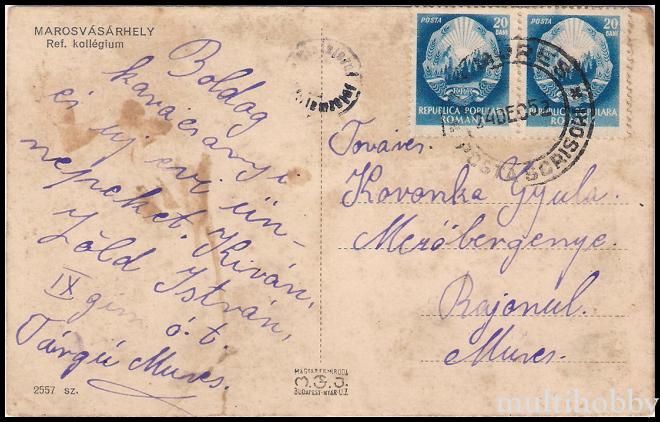 MAROSVÁSÁRHELY
Ref. kollégium
Boldog
karácsonyi
és új évi ün-
nepeket. Kiván,
Zöld István,
IX gim ó. t.
Târgú Mures.
2557 sz.
MAGYAR FILMIRODA
M.F.I.
BUDAPEST-NYÁR-U.Z.
POSTA 20 BANI
REPUBLICA POPULARA
ROMANA
POSTA 20 BANI
REPUBLICA POPULARA
ROMANA
24DEC
POSTA SCRISORI
Továrés.
Kovonka Gyula.
Mezőbergenye.
Rajonul.
Mures.
multihobby